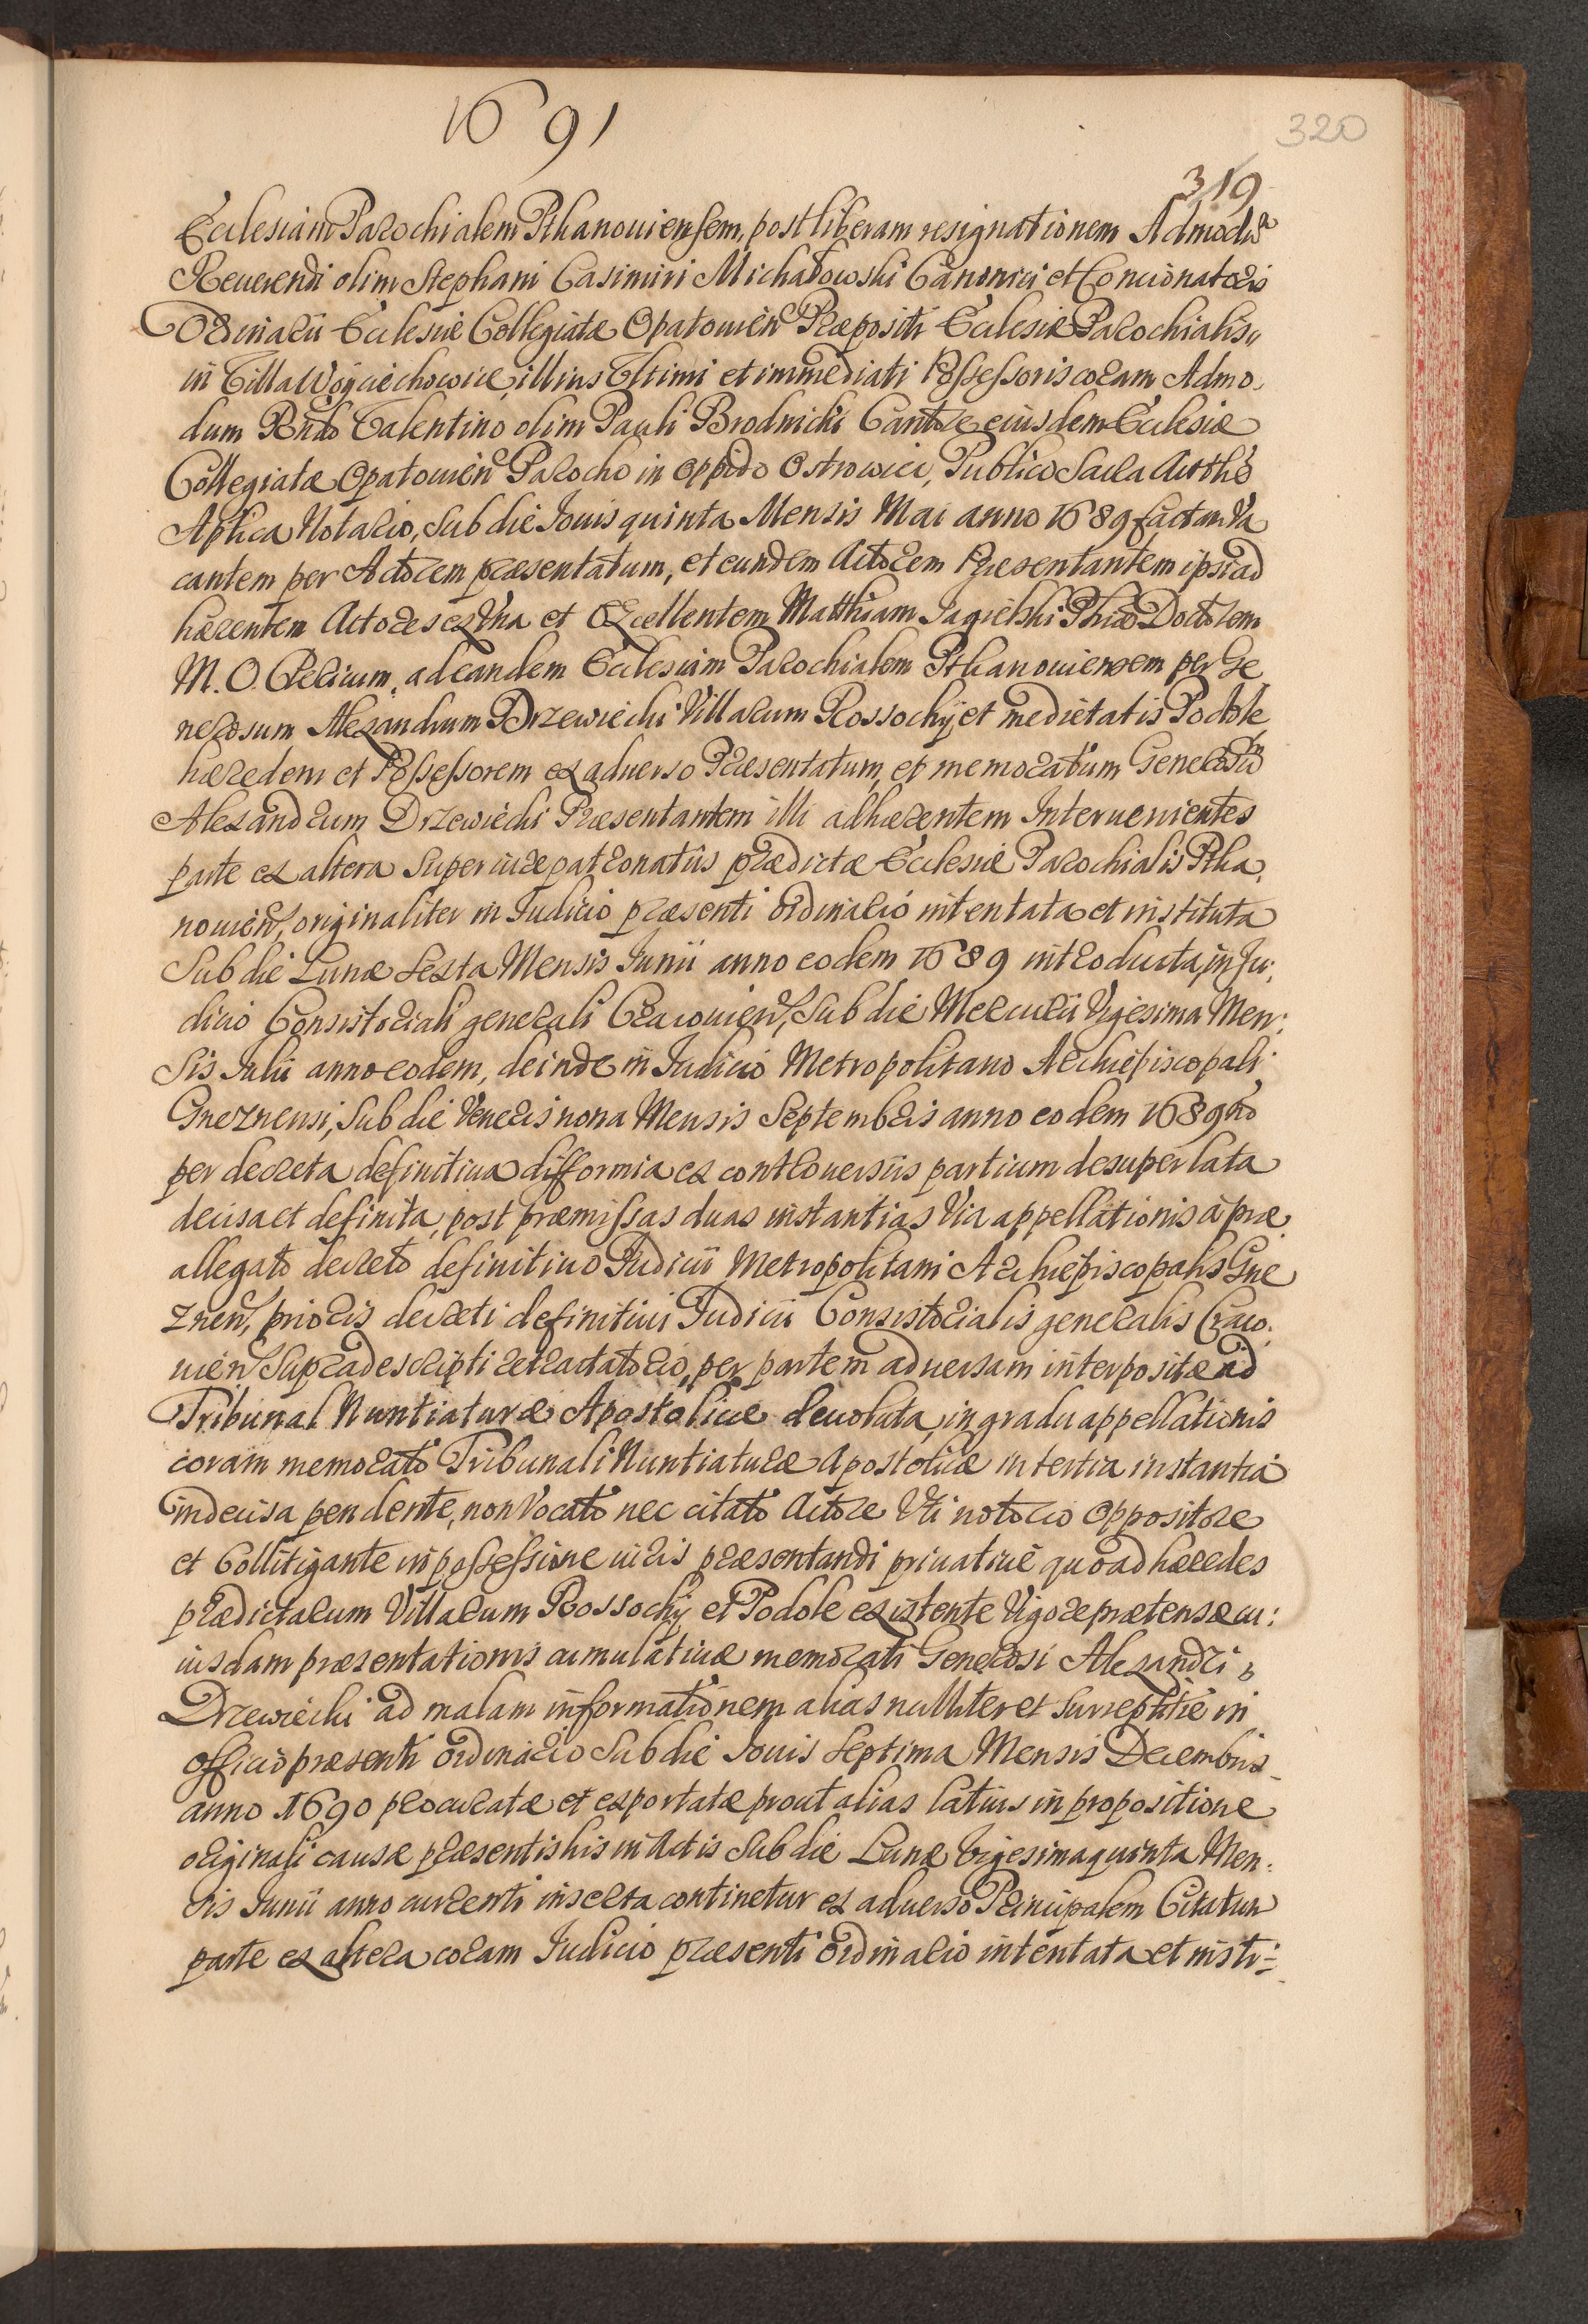 1691
320
319
Ecclesiam Parochialem Ptkanouiensem, post liberam resignationem Admodu
Reuerendi olim Stephani Casimiri Michałowski Canonici et Concionatoris
Ordinarii Ecclesiæ Collegiatæ Opatouien Præpositi Ecclesiæ Parochialis
in Villa Woyciechowice, illius Vltimi et immediati Possessoris coram Admo,
dum Rndo Valentino olim Pauli Brodnicki Cantore eiusdem Ecclesiæ
Collegiatæ Opatouien Parocho in oppido Ostrowiec, Publico Sacra Autthe
Aplica Notario, Sub die Iouis quinta Mensis Mai anno 1689 factam Va
cantem per Actorem præsentatum, et eundem Actorem Præsentantem ipsi ad
hærentem Actores ex Vna et Excellentem Matthiam Jagielski Phiæ Doctorem
M. O. Clericum, ad eandem Ecclesiam Parochialem Ptkanouiensem per Ge
nerosum Alexandrum Drzewiecki Villarum Rossochy et medietatis Podole
hæredem et Possessorem ex aduerso Præsentatum, et memoratum Generosum
Alexandrum Drzewiecki Præsentantem illi adhærentem Interuenientes
parte ex altera Super iure patronatus prædictæ Ecclesiæ Parochialis Ptka,
nouien, originaliter in Iudicio præsenti ordinario intentata et instituta
Sub die Lunæ Sexta Mensis Iunii anno eodem 1689 introducta, in Iu,
dicio Consistoriali generali Cracouien, Sub die Mercurii Vigesima Men:
sis Iulii anno eodem, deinde in Iudicio Metropolitano Archiepiscopali
Gneznensi, Sub die Veneris nona Mensis Septembris anno eodem 1689no
per decreta definitiua difformia ex controuersiis partium desuper lata
decisa et definita, post præmissas duas instantias Via appellationis à præ
allegato decreto definitiuo Iudicii Metropolitani Archiepiscopalis Gne
znen, prioris decreti definitiui Iudicii Consistorialis generalis Craco.
uien Supradescripti retractatorio, per partem aduersam interpositæ ad
Tribunal Nuntiaturæ Apostolicæ deuoluta, in gradu appellationis
coram memorato Tribunali Nuntiaturæ Apostolicæ in tertia instantia
indecisa pendente, non Vocato nec citato Actore Vti notorio oppositore
et Collitigante in possessione iuris præsentandi priuatiue quoad hæredes
prædictarum Villarum Rossochy et Podole existente Vigore prætensæ cu:
iusdam præsentationis cumulatiuæ memorati Generosi Alexandri
Drzewiecki ad malam informationem alias nulliter et surreptitie in
officio præsenti ordinario Sub die Iouis Septima Mensis Decembris
anno 1690 procuratæ et exportatæ prout alias latius in propositione
originali causæ præsentis his in Actis Sub die Lunæ Vigesima quinta Men:
sis Iunii anno currenti inserta continetur ex aduerso Principalem Citatum
parte ex altera coram Iudicio præsenti ordinario intentata et insti: